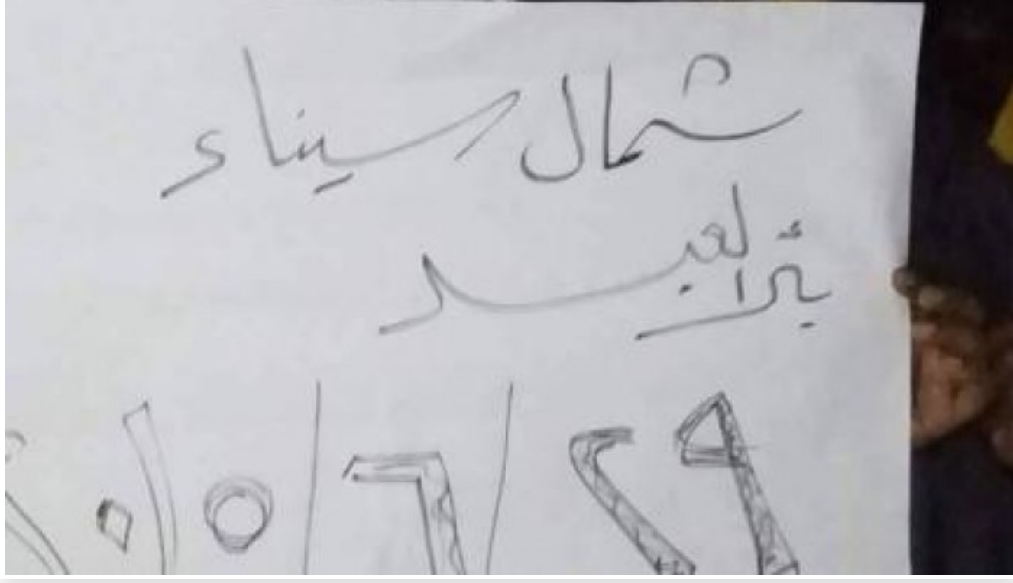 شمال سيناء
بئر العبد
٢٩/٦/٢٠١٥